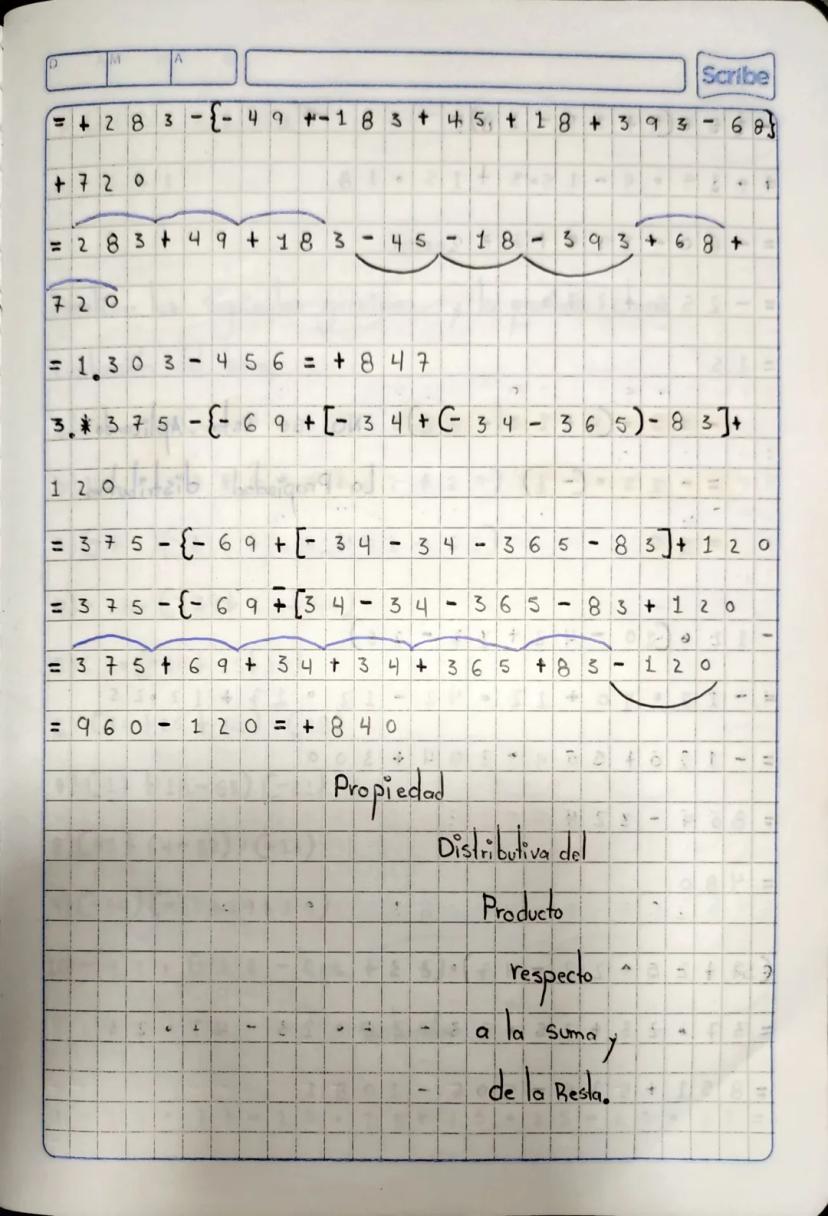 D M A
Scribe
= + 2 8 3 - {- 4 9 + - 1 8 3 + 4 5 + 1 8 + 3 9 3 - 6 8}
+ 7 2 0
= 2 8 3 + 4 9 + 1 8 3 - 4 5 - 1 8 - 3 9 3 + 6 8 +
7 2 0
= 1.3 0 3 - 4 5 6 = + 8 4 7
3.* 3 7 5 - {- 6 9 + [- 3 4 + (- 3 4 - 3 6 5) - 8 3] +
1 2 0
= 3 7 5 - {- 6 9 + [- 3 4 - 3 4 - 3 6 5 - 8 3] + 1 2 0
= 3 7 5 - {- 6 9 + - [3 4 - 3 4 - 3 6 5 - 8 3 + 1 2 0
= 3 7 5 + 6 9 + 3 4 + 3 4 + 3 6 5 + 8 3 - 1 2 0
= 9 6 0 - 1 2 0 = + 8 4 0
Propiedad
Distributiva del
Producto
respecto
a la suma y
de la Resta.